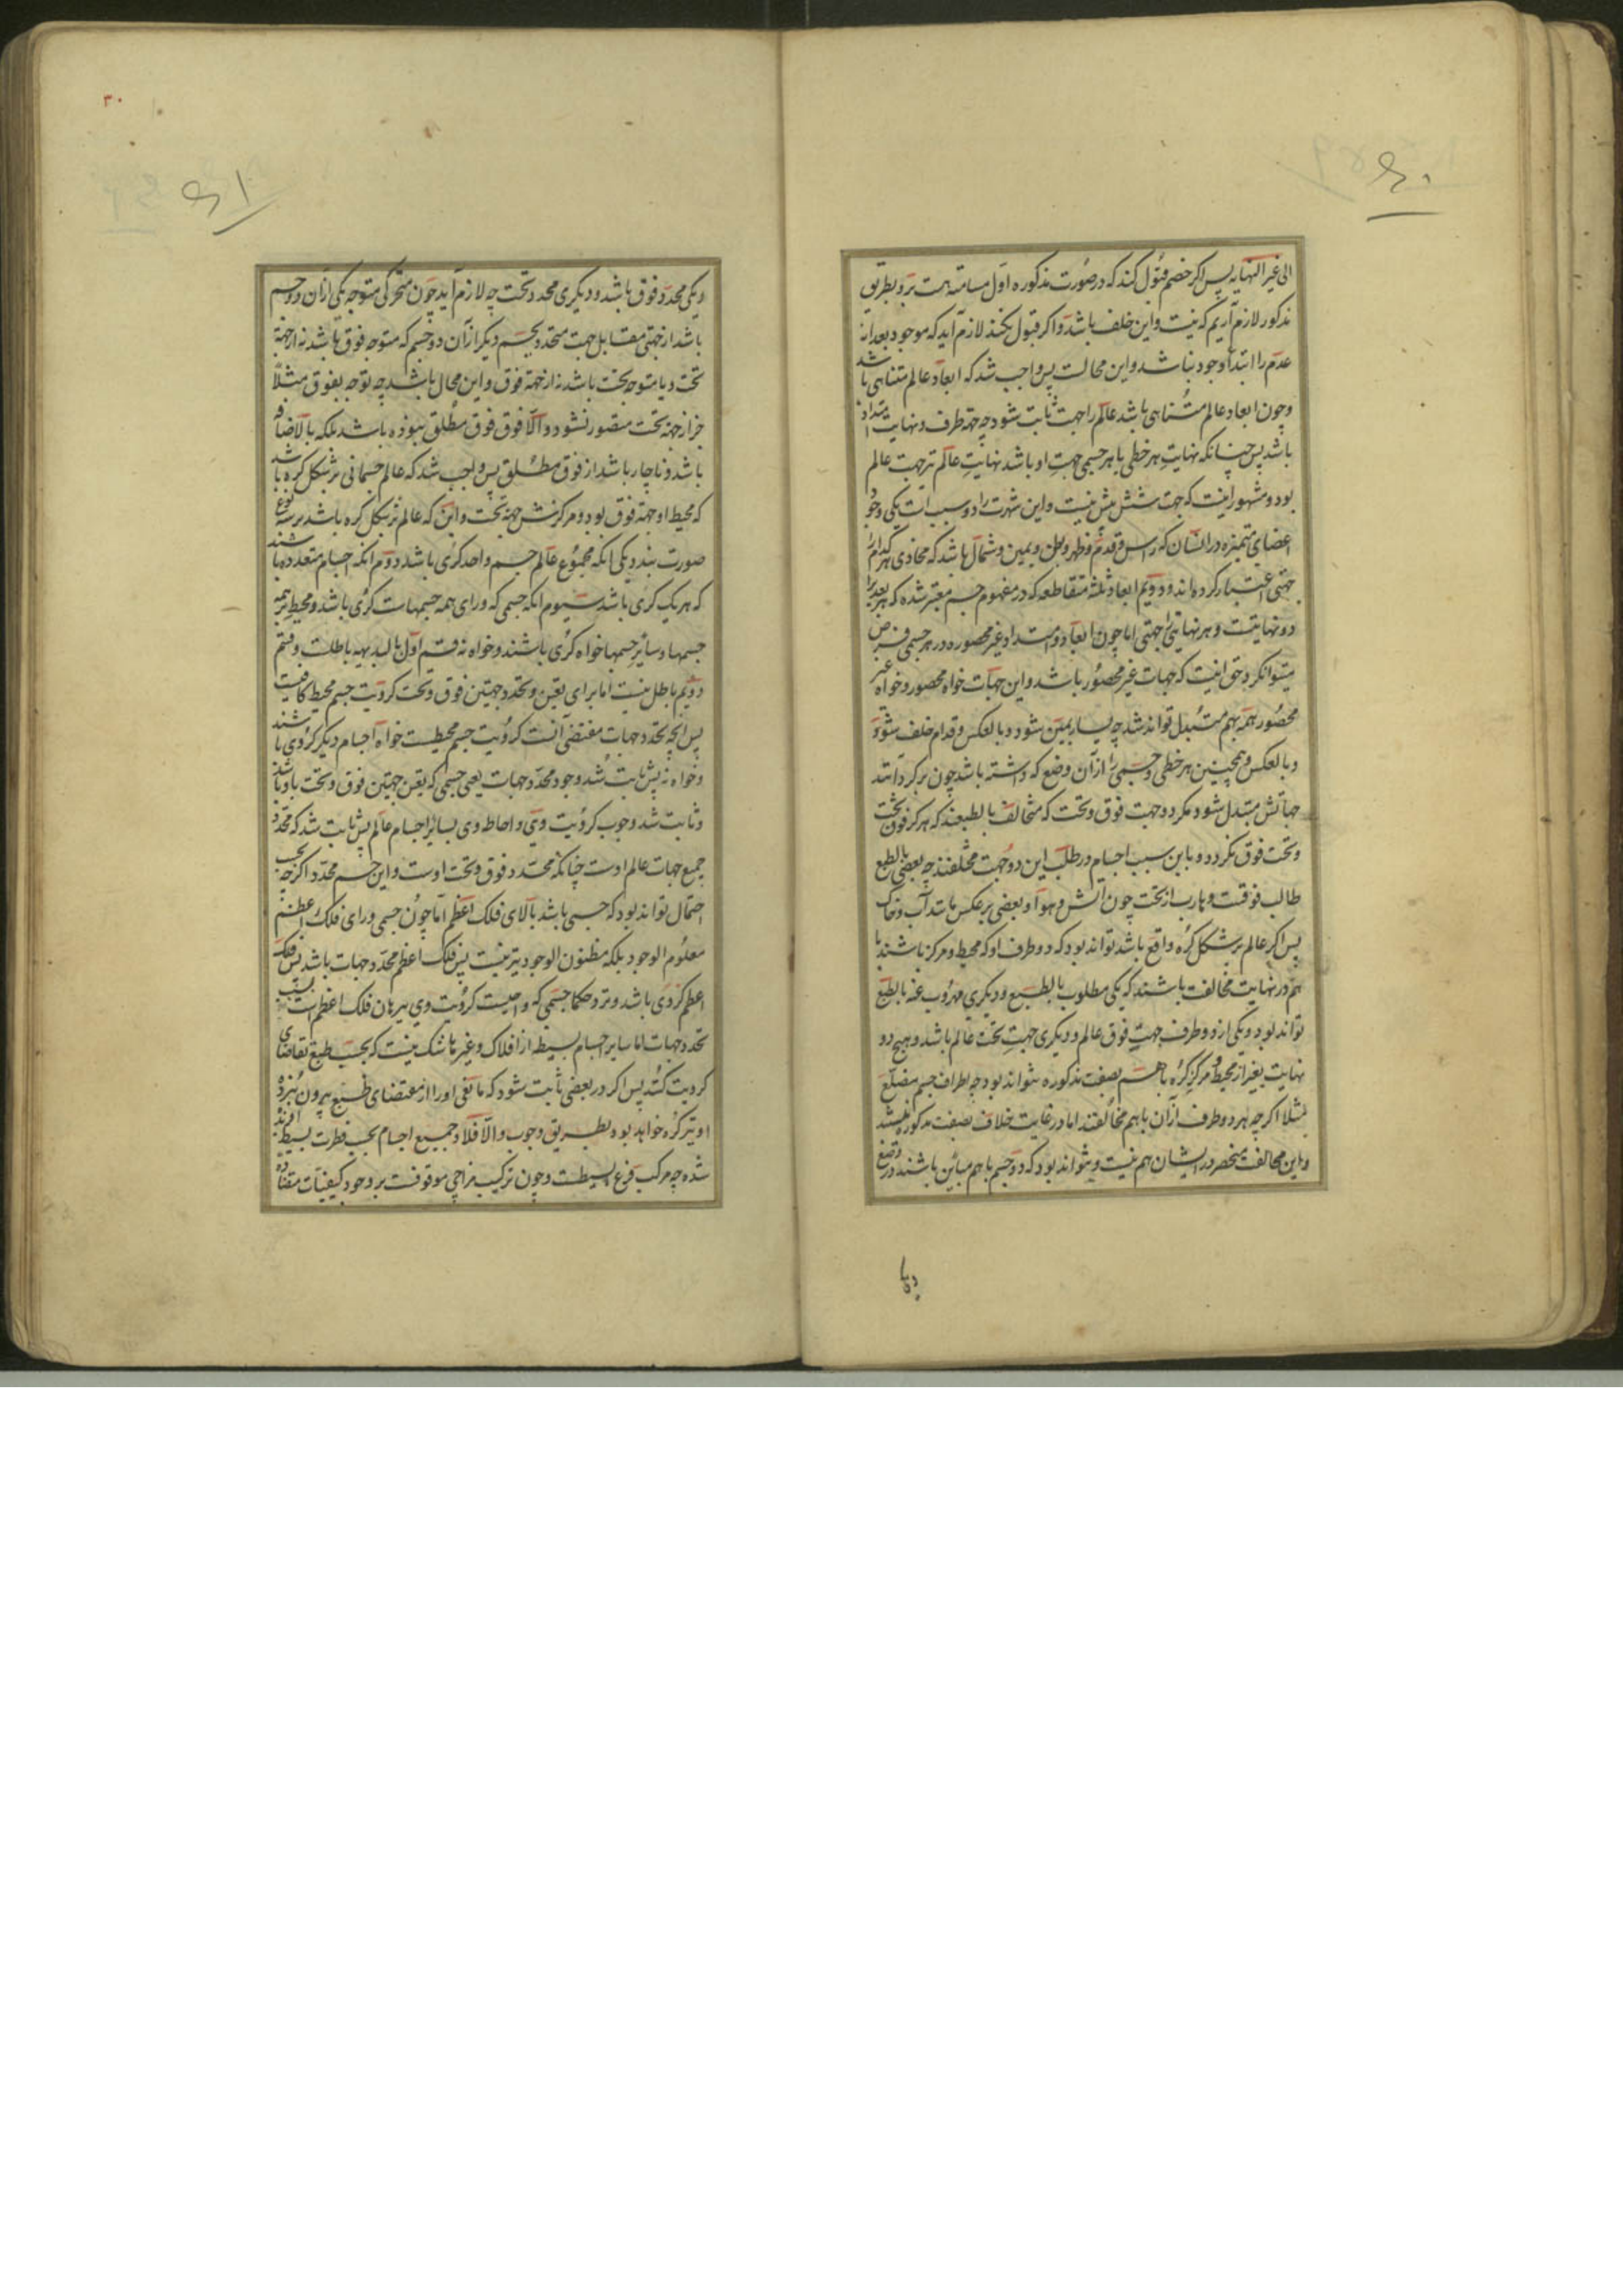 ۶۰
الی غیر النهایه پس اگر خصم قبول کند که درصورت مذکوره اول مسامته هست برو بطریق
مذکور لازم آریم که نیست واین خلف باشد واگر قبول نکند لازم آید که موجود بعد از
عدم را ابتداء وجود نباشد واین محالست پس واجب شد که ابعاد عالم متناهی باشد
وچون ابعاد عالم متناهی باشد عالم را جهت ثابت شود چه جهة طرف ونهایت امتداد
باشد پس چنانکه نهایت هر خطی یا هر جسمی جهت او باشد نهایت عالم نیز جهت عالم
بود ومشهور اینست که جهت شش بیش نیست واین شهرت را دو سبب است یکی وجود
اعضای متمیزه در انسان که راس وقدم وظهر وبطن ویمین وشمال باشد که محاذی هر کدام را
جهتی اعتبار کرده اند ودویم ابعاد ثلثه متقاطعه که در مفهوم جسم معتبر شده که هر بعد را
دو نهایتست وهر نهایتی جهتی اما چون ابعاد وامتداد غیر محصوره در هر جسمی فرض
میتوانکرد حق اینست که جهات غیر محصور باشد واین جهات خواه محصور وخواه غیر
محصور همه بهم متبدل تواند شد چه یسار یمین شود وبالعکس وقدام خلف شود
وبالعکس وهمچنین هر خطی وجسمی را از آن وضع که داشته باشد چون برگردانند
جهاتش متبدل شود مگر دو جهت فوق وتحت که متخالف بالطبعند که هرگز فوق تحت
وتحت فوق نگردد وباین سبب اجسام در طلب این دو جهت مختلفند چه بعضی بالطبع
طالب فوقست وهارب از تحت چون آتش وهوا وبعضی بر عکس مانند آب وخاک
پس اگر عالم بر شکل کره واقع باشد تواند بود که دو طرف او که محیط ومرکز باشند با
هم در نهایت مخالفت باشند که یکی مطلوب بالطبع ودیگری مهروب عنه بالطبع
تواند بود ویکی از دو طرف جهت فوق عالم ودیگری جهت تحت عالم باشد وهیچ دو
نهایت بغیر از محیط ومرکز کره باهم بصفت مذکوره نتواند بود چه اطراف جسم مضلع
مثلا اگرچه هر دو طرف از آن باهم مخالفند اما در غایت خلاف بصفت مذکوره نیستند
واین مخالفت منحصر در ایشان هم نیست ونتواند بود که دو جسم باهم مباین باشند در وضع
۳۰
۶۱
ویکی محدد فوق باشد ودیگری محدد تحت چه لازم آید چون متحرکی متوجه یکی از آن دو جسم
باشد از جهتی مقابل جهت متحدد بجسم دیگر از آن دو جسم که متوجه فوق باشد نه از جهة
تحت ویا متوجه تحت باشد نه از جهة فوق واین محال باشد چه توجه بفوق مثلاً
جز از جهة تحت متصور نشود والا فوق فوق مطلق نبوده باشد بلکه بالاضافه
باشد وناچار باشد از فوق مطلق پس واجب شد که عالم جسمانی بر شکل کره باشد
که محیط او جهة فوق بود ومرکزش جهة تحت واین که عالم بر شکل کره باشد بر سه نوع
صورت بندد یکی آنکه مجموع عالم جسم واحد کری باشد دوم آنکه اجسام متعدده باشند
که هر یک کری باشد سیوم آنکه جسمی که ورای همه جسمهاست کری باشد ومحیط بر همه
جسمها وسایر جسمها خواه کری باشند وخواه نه قسم اول بالبدیهه باطلست وقسم
دویم باطل نیست اما برای تعین وتحدد جهتین فوق وتحت کرویت جسم محیط کافیست
پس آنچه تحدد جهات مقتضی آنست کرویت جسم محیطست خواه اجسام دیگر کروی باشند
وخواه نه پس ثابت شد وجود محدد جهات یعنی جسمی که تعین جهتین فوق وتحت باو باشد
وثابت شد وجوب کرویت وی واحاطه وی بسایر اجسام عالم پس ثابت شد که محدد
جمیع جهات عالم اوست چنانکه محدد فوق وتحت اوست واین جسم محدد اگرچه بحسب
احتمال تواند بود که جسمی باشد بالای فلک اعظم اما چون جسمی ورای فلک اعظم
معلوم الوجود بلکه مظنون الوجود نیز نیست پس فلک اعظم محدد جهات باشد پس فلک
اعظم کروی باشد ونزد حکما جسمی که واجبست کرویت وی ببرهان فلک اعظم است بسبب
تحدد جهات اما سایر اجسام بسیطه از افلاک وغیرها شک نیست که بحسب طبع تقاضای
کرویت کند پس اگر در بعضی ثابت شود که مانعی او را از مقتضای طبع بیرون نبرده
او نیز کره خواهد بود بطریق وجوب والا فلا وجمیع اجسام بحسب فطرت بسیط
شده چه مرکب فرع بسیطست وچون ترکیب مزاجی موقوفست بر وجود کیفیات متضاده